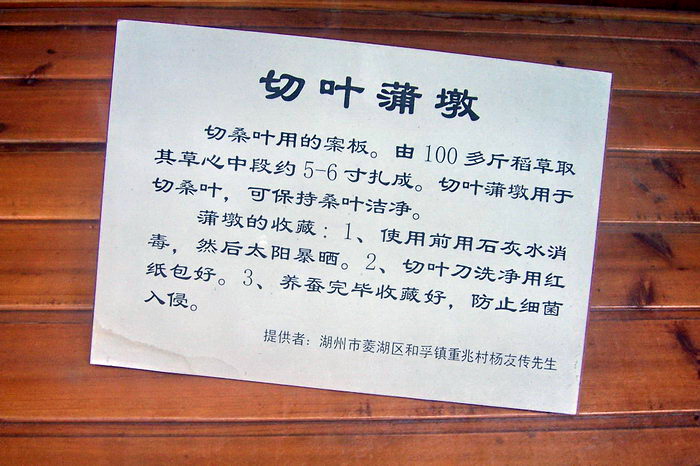 切叶蒲墩
切桑叶用的案板。由100多斤稻草取
其草心中段约5-6寸扎成。切叶蒲墩用于
切桑叶，可保持桑叶洁净。
蒲墩的收藏：1、使用前用石灰水消
毒，然后太阳暴晒。2、切叶刀洗净用红
纸包好。3、养蚕完毕收藏好，防止细菌
入侵。
提供者：湖州市菱湖区和孚镇重兆村杨友传先生